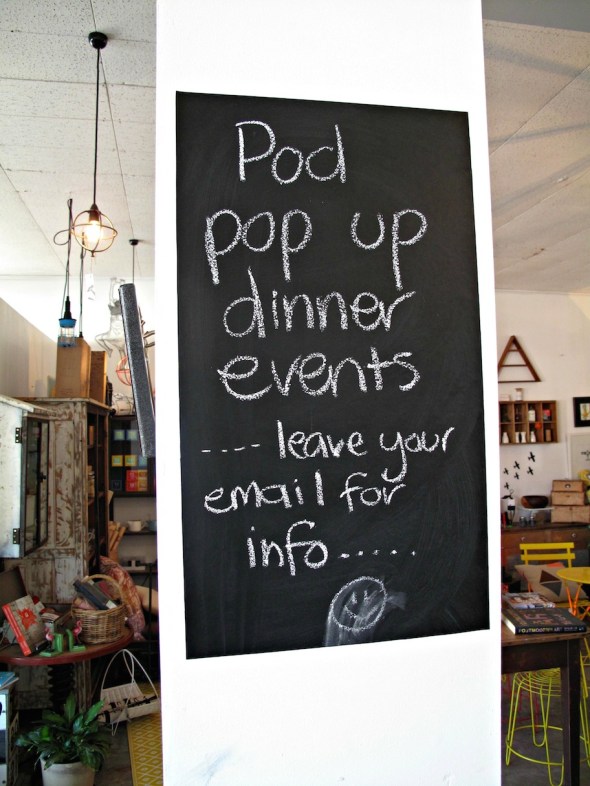 Pod
pop up
dinner
events
---- leave your
email for
info.....